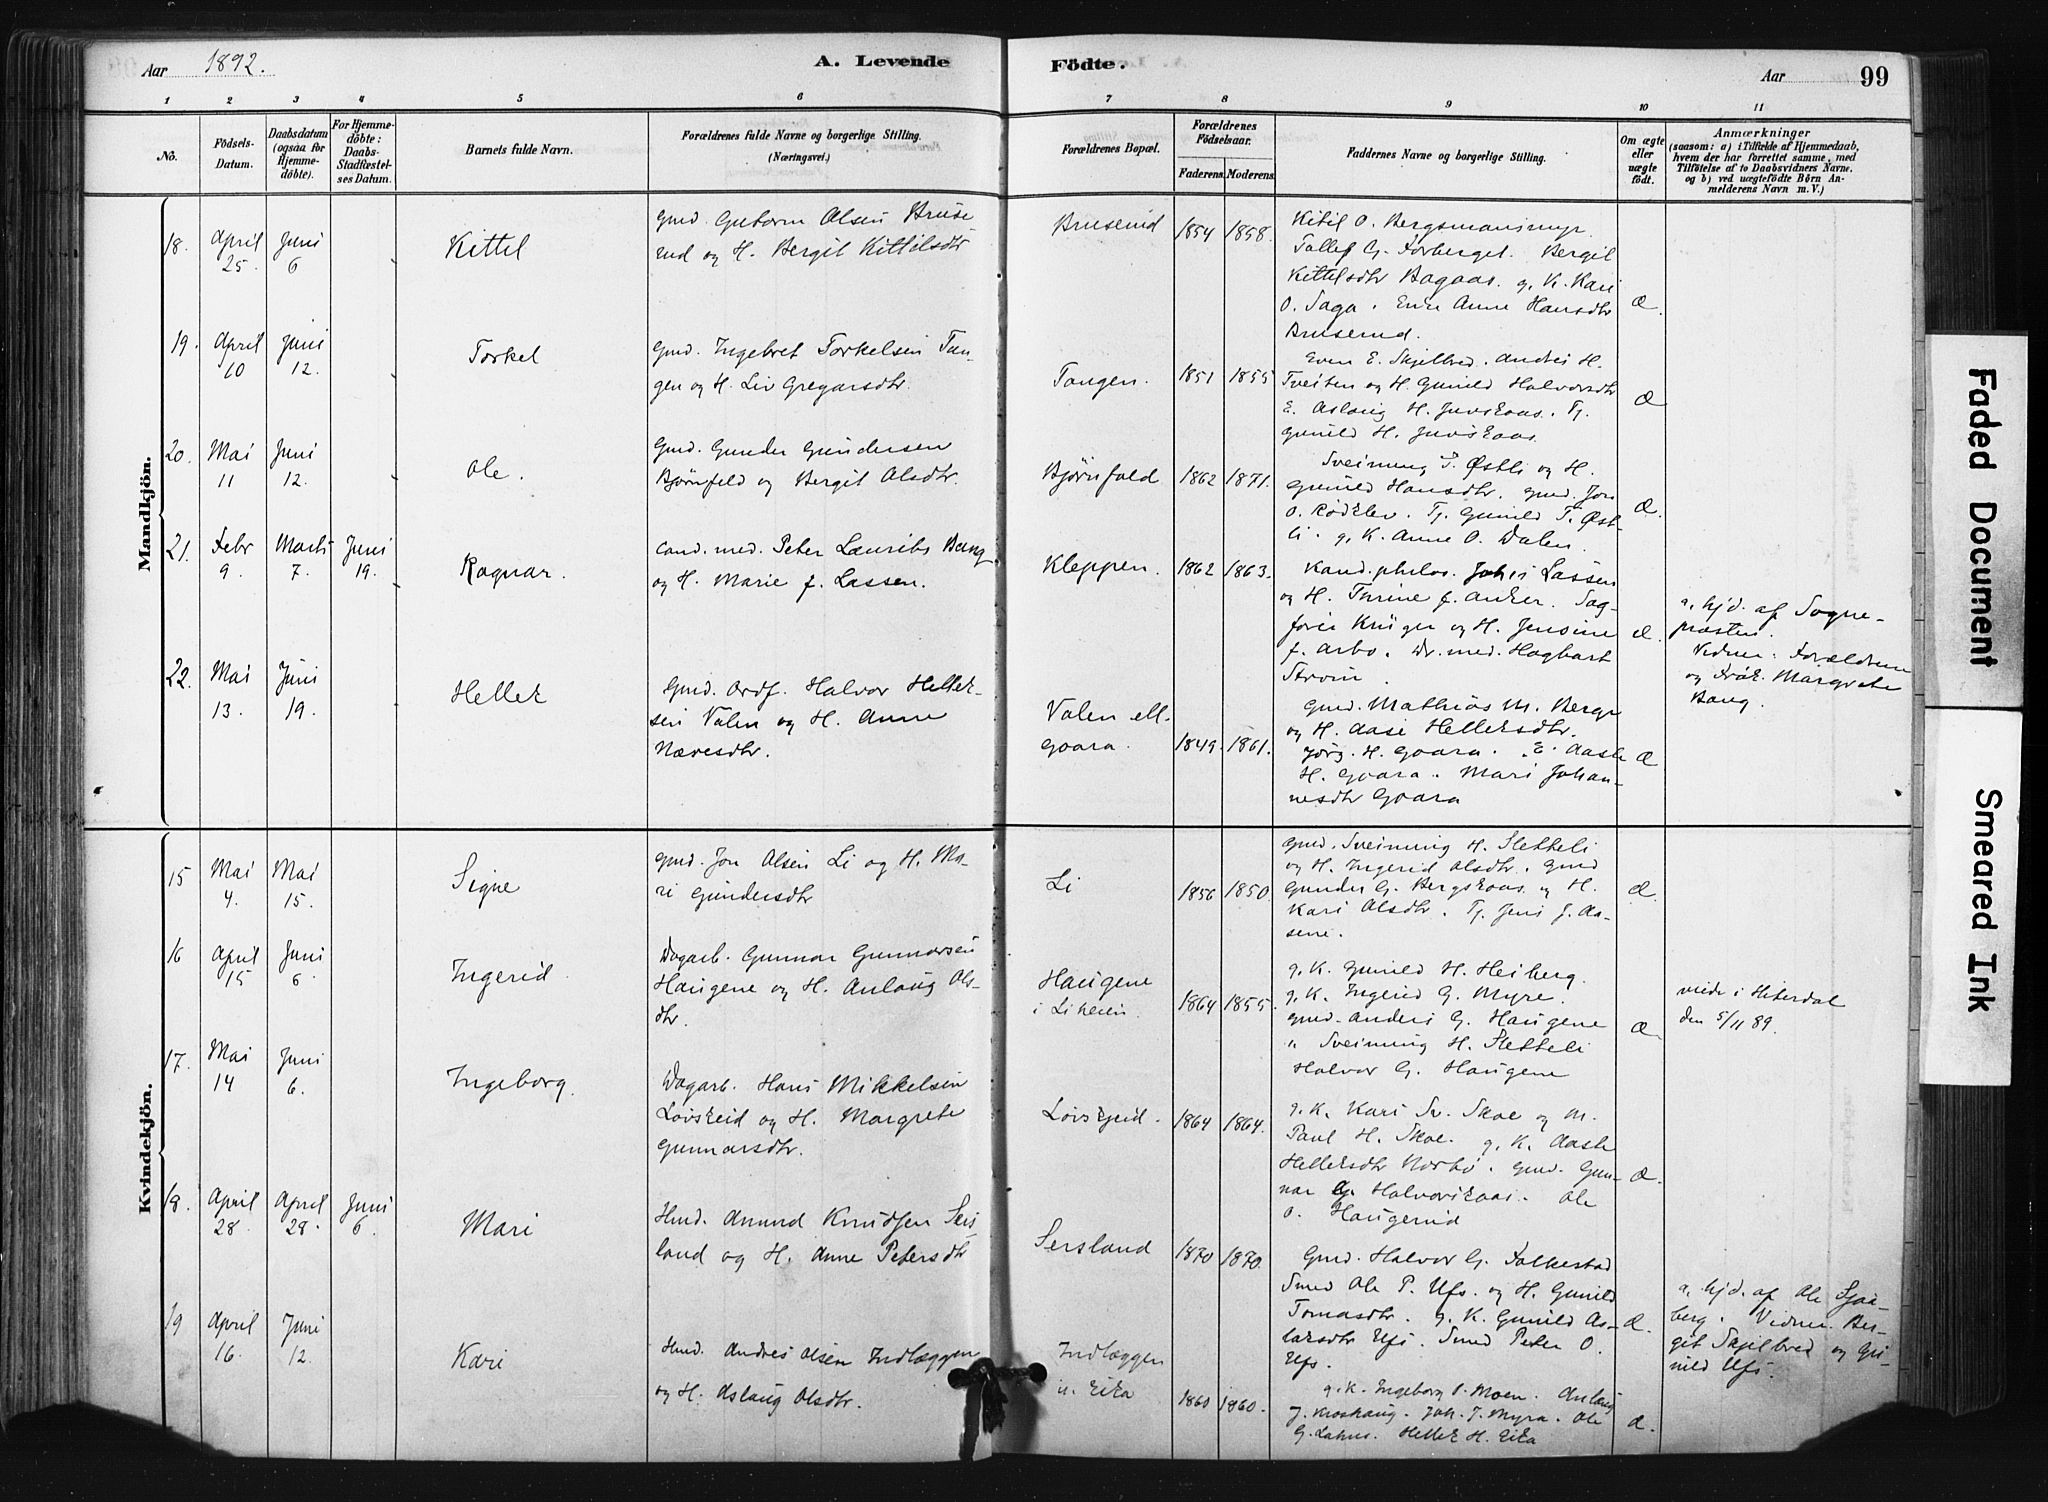 Aar 1892.
A. Levende Födte.
Aar
99
1 2 3 4 5 6 7 8 9 10 11
No.
Födsels-Datum.
Daabsdatum (ogsaa for Hjemme-döbte).
For Hjemme-döbte: Daabs-Stadfæstel-ses Datum.
Barnets fulde Navn.
Forældrenes fulde Navne og borgerlige Stilling.
(Næringsvei.)
Forældrenes Bopæl.
Forældrenes Födselsaar.
Faderens. Moderens.
Faddernes Navne og borgerlige Stilling.
Om ægte eller uægte födt.
Anmærkninger
(saasom: a) i Tilfælde af Hjemmedaab, hvem der har forrettet samme, med Tilföielse af to Daabsvidners Navne, og b) ved uægtefödte Børn An-melderens Navn m. V.)
Mandkjön.
18. April 25. Juni 6 Kittel
Gmd. Gutorm Olsen Bruse
rud og H. Bergit Kittilsdtr
Bruserud 1854 1858.
Kitil O. Bergsmansmyr.
Tollef G. Forberget. Bergit
Kittelsdtr Bagaas. g. K. Kari
O. Saga. Enke Anne Hansdtr
Bruserud.
Æ.
19. April 10 Juni 12. Torkel
Gmd. Ingebret Torkelsen Tan-
gen og H. Liv Gregarsdtr.
Tangen. 1851 1855
Even E. Skjelbred. Andres H.
Tveiten og H. Gunild Halvorsdtr
E. Aslaug H. Juvskaas. Tj.
Gunild H. Juvskaas.
Æ
20. Mai 11 Juni 12. Ole.
Gmd. Gunder Gundersen
Bjørnfeld og Bergit Olsdtr.
Bjørnfald 1862 1871.
Sveinung T. Østli og H.
Gunild Hansdtr. Gmd. Jon
O. Rødklev. Tj. Gunild T. Øst-
li. g. K. Anne O. Dalen.
Æ.
21. Febr 9. Marts 7. Juni 19. Ragnar.
Cand. med. Peter Laurits Bang
og H. Marie f. Lassen.
Kleppen. 1862 1863.
Kand. philos. Johs Lassen
og H. Thrine f. Anker. Sag-
fører Krüger og H. Jensine
f. Arbo. Dr. med. Hagbart
Strøm.
Æ.
a, hjd. af Sogne-
præsten.
Vidner: Forældrene
og Frøk. Margrete
Bang.
22. Mai 13. Juni 19. Hellek
Gmd. Ordf. Halvor Hellek-
sen Valen og H. Anne
Nævesdtr.
Valen ell.
Goara. 1849. 1861.
Gmd. Mathias M. Berge
og H. Aase Helleksdtr.
Jørg. H. Goara. E. Aasle
H. Goara. Mari Johan-
nesdtr Goara
Æ
Kvindekjön.
15 Mai 4. Mai 15. Signe
Gmd. Jon Olsen Li og H. Ma-
ri Gundersdtr
Li 1856 1850.
Gmd. Sveinung H. Sletteli
og H. Ingerid Olsdtr. Gmd
Gunder G. Bergskaas og H.
Kari Olsdtr. Tj. Jens J. Aa-
sene.
Æ.
16 April 15 Juni 6. Ingerid
Dagarb. Gunnar Gunnarsen
Haugene og H. Anlaug Ols-
dtr.
Haugene
i Liheien. 1864 1855.
g. K. Gunild H. Heiberg.
g. K. Ingerid G. Myre.
Gmd. Anders G. Haugene
" Sveinung H. Sletteli
Halvor G. Haugene
Æ
viede i Hiterdal
den 5/11 89.
17. Mai 14 Juni 6. Ingeborg.
Dagarb. Hans Mikkelsen
Løvskeid og H. Margrete
Gunnarsdtr.
Løvskjeid. 1864 1864.
g. K. Kari Sv. Skoe og M.
Paul H. Skoe. g. K. Aasle
Helleksdtr Norbø. Gmd. Gun-
nar G. Halvorskaas. Ole
O. Haugerud
Æ.
18. April 28 April 28. Juni 6. Mari
Hmd. Amund Knudsen Sers
land og H. Anne Petersdtr
Sersland 1870 1870.
Gmd. Halvor G. Folkestad
Smed Ole P. Ufs. og H. Gunild
Tomasdtr. g. K. Gunild As-
laksdtr Ufs. Smed Peter O.
Ufs.
Æ.
a, hjd. af Ole Sjaa-
berg. Vidner. Ber-
git Skjelbred og Gu-
nild Ufs.
19 April 16. Juni 12. Kari
Hmd. Andres Olsen Indlæggen
og H. Aslaug Olsdtr.
Indlæggen
u. Eika 1860 1860.
g. K. Ingeborg O. Moen. Anlaug
J. Kroshaug. Joh. J. Myra. Ole
G. Lahus. Hellek H. Eika
Æ.
Faded Document
Smeared Ink